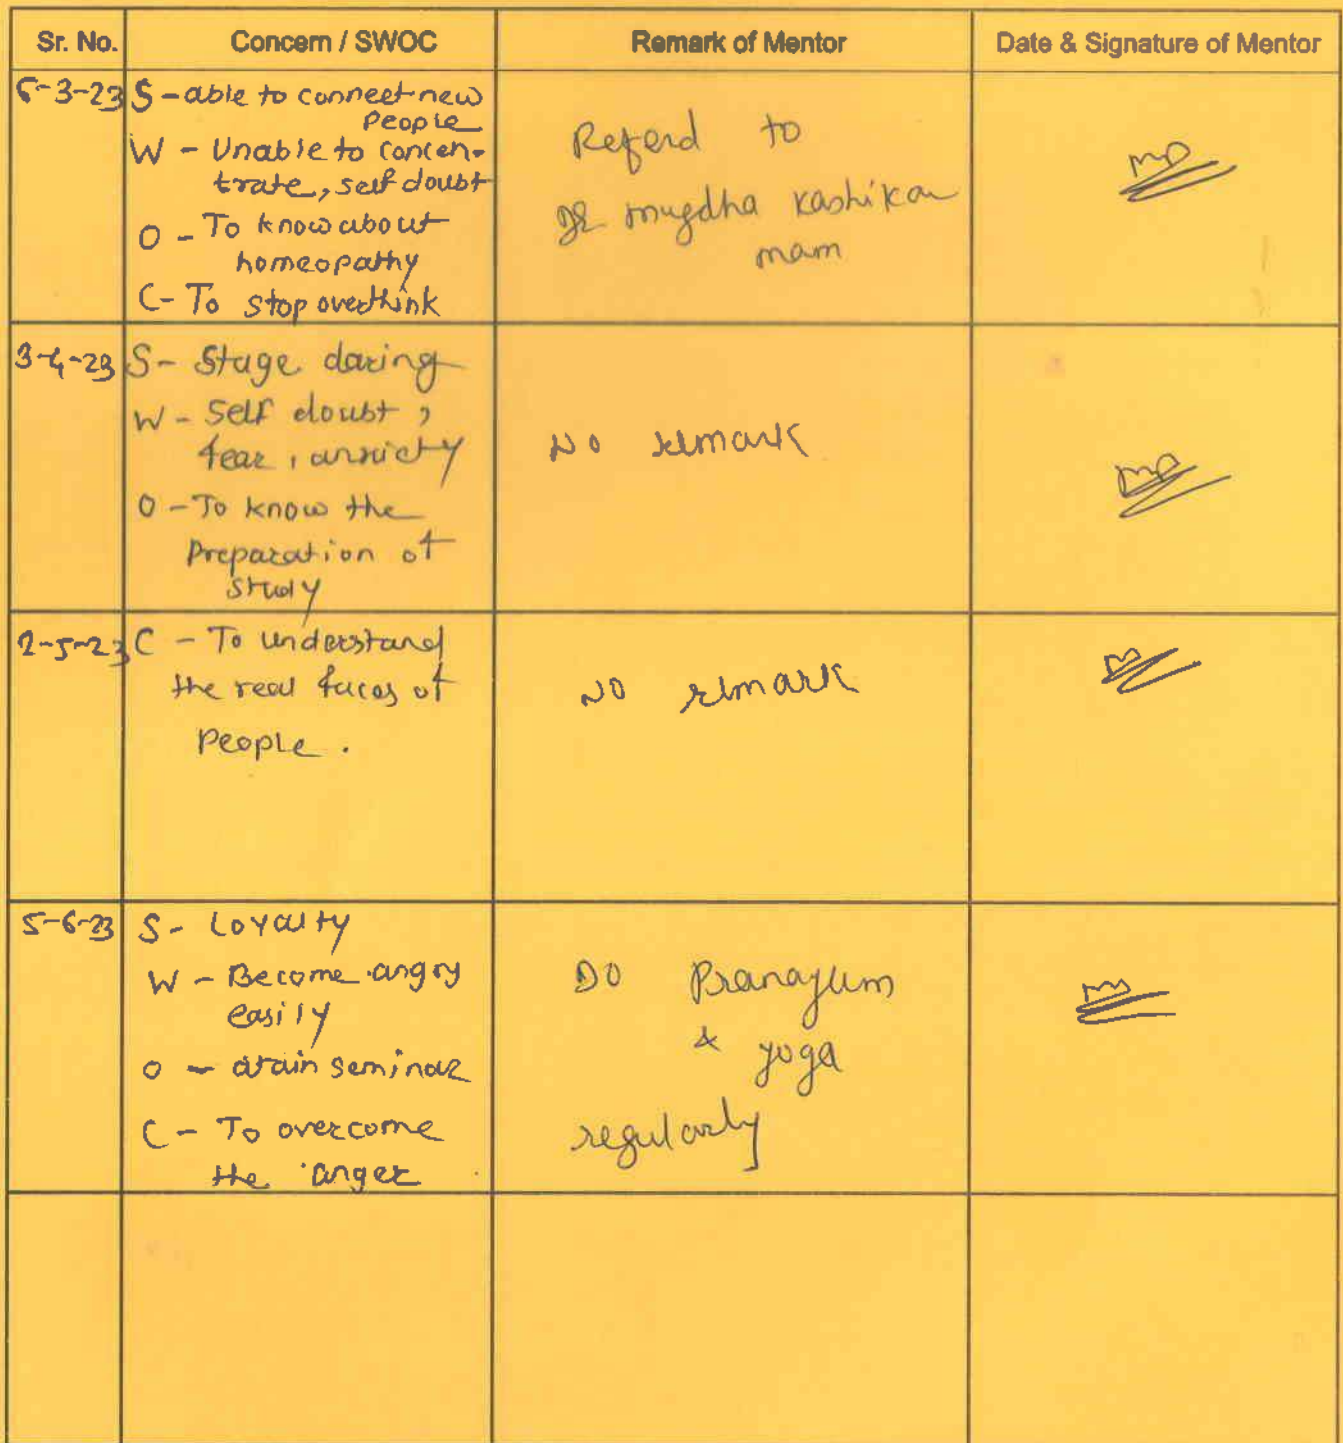 Sr. No. Concern / SWOC Remark of Mentor Date & Signature of Mentor
6-3-23 S - able to connect new
People
W - Unable to concen-
trate, self doubt
O - To know about
homeopathy
C - To stop overthink
Referd to
DR mugdha kashikar
mam
3-4-23 S - Stage daring
W - Self doubt,
fear, anxiety
O - To know the
preparation of
study
No remark
2-5-23 C - To understand
the real faces of
People.
NO remark
5-6-23 S - Loyalty
W - Become angry
easily
O - atain seminar
C - To overcome
the anger
DO Pranayum
& yoga
regularly